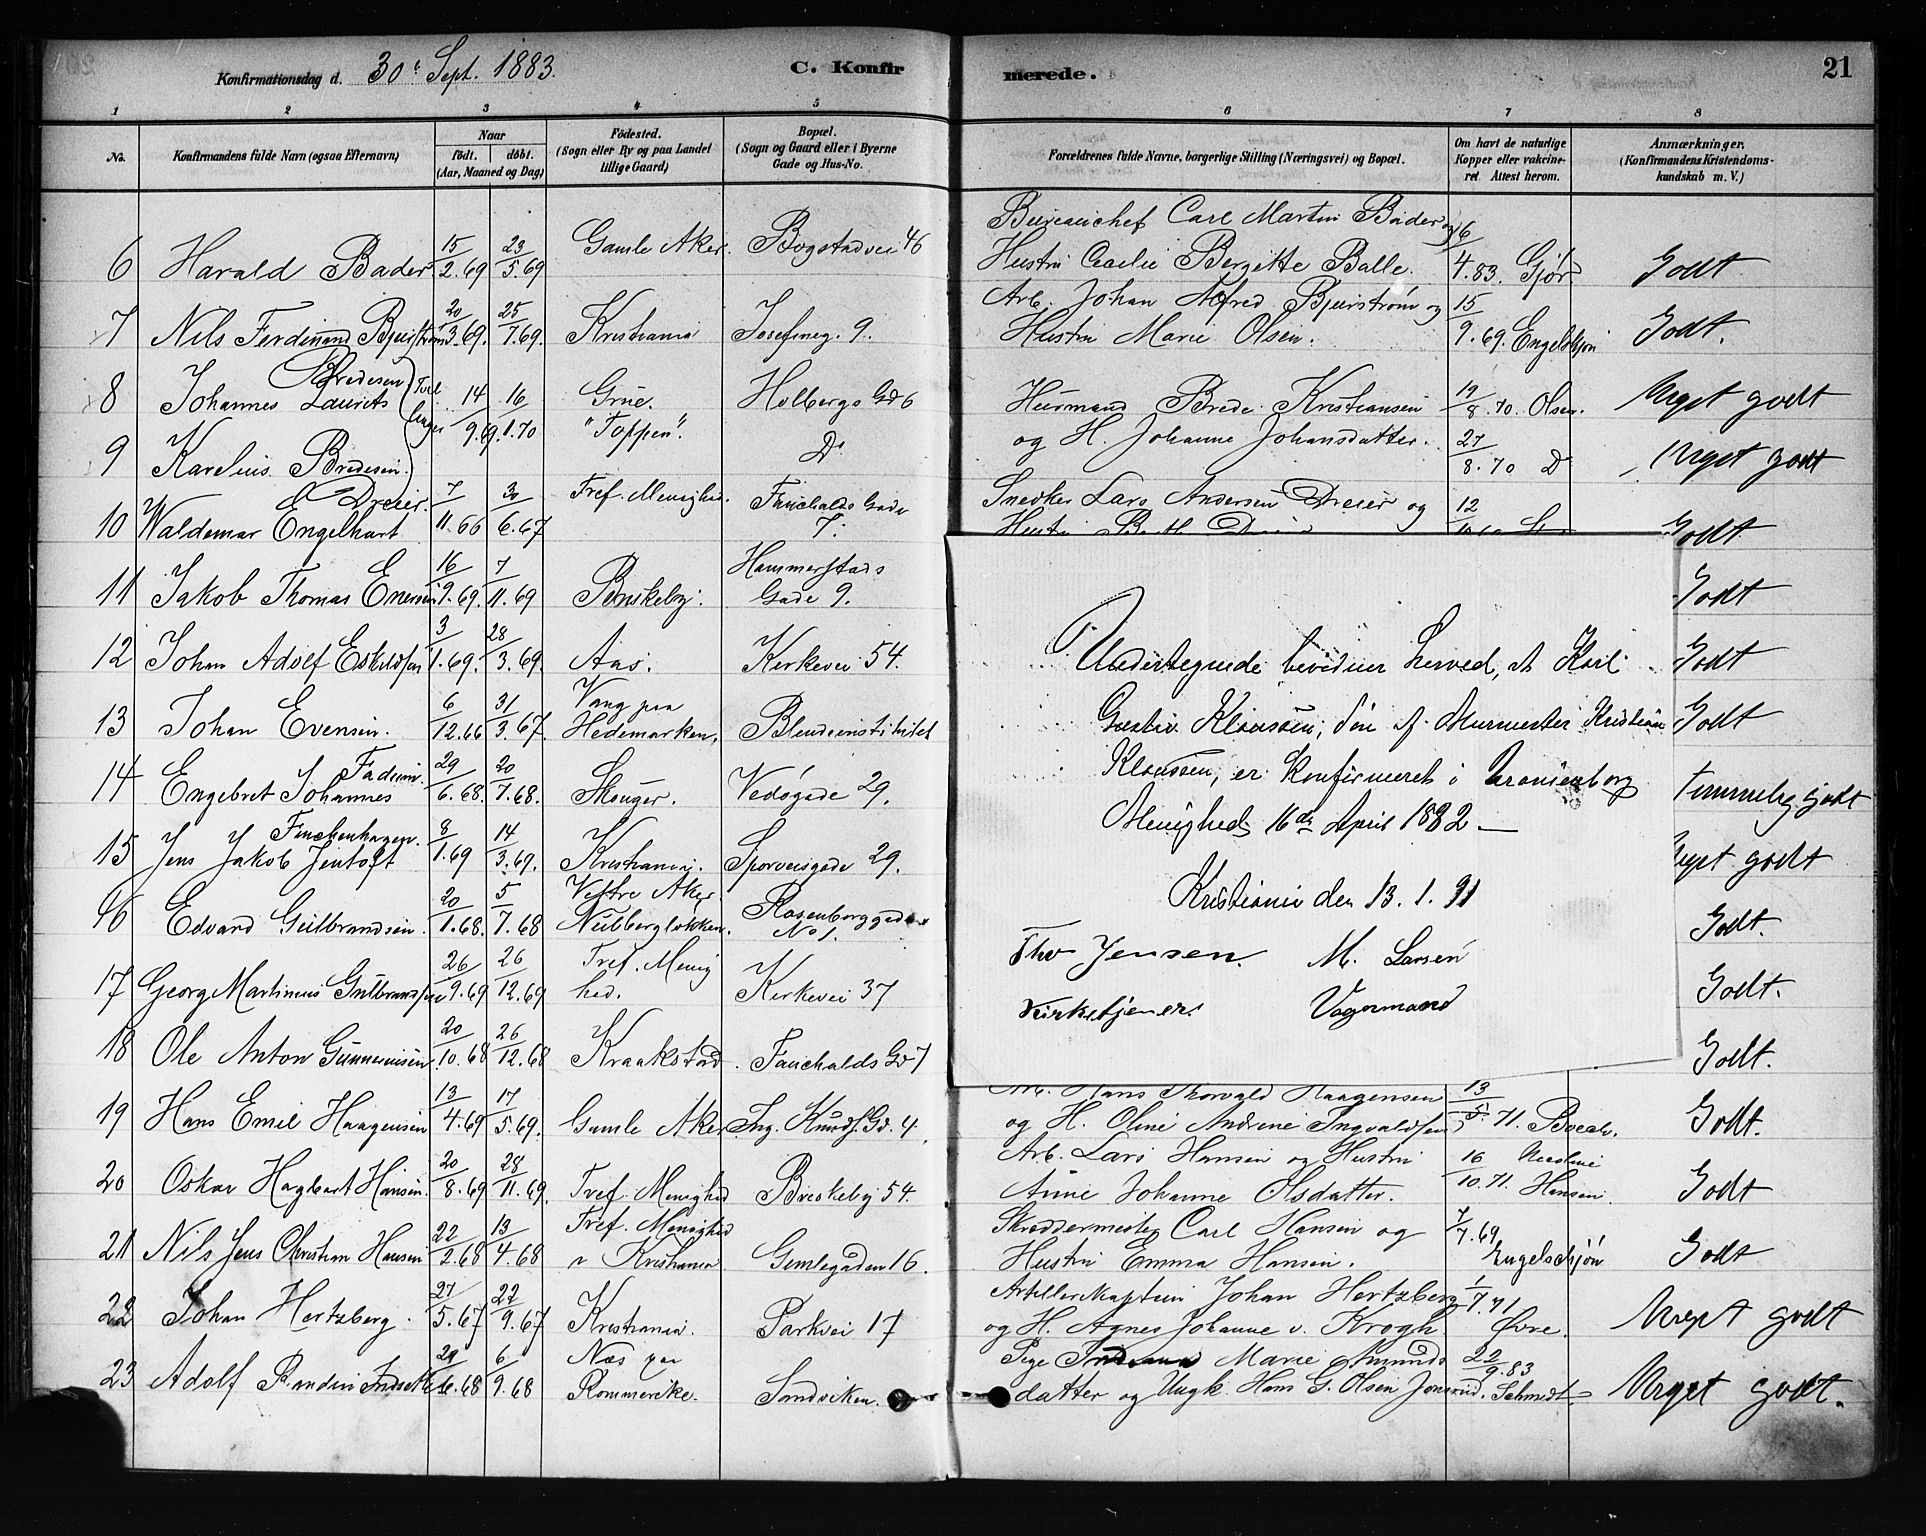 Konfirmationsdag d. 30 Sept. 1883.
C. Konfirmerede.
21
1 2 3 4 5 6 7 8
No.
Konfirmandens fulde Navn (ogsaa Efternavn)
Naar
født. døbt.
(Aar, Maaned og Dag)
Fødested.
(Sogn eller By og paa Landet
tillige Gaard)
Bopæl.
(Sogn og Gaard eller i Byerne
Gade og Hus-No.
Forældrenes fulde Navne, borgerlige Stilling (Næringsvei) og Bopæl.
Om havt de naturlige
Kopper eller vakcine-
ret. Attest herom.
Anmærkninger.
(Konfirmandens Kristendoms-
kundskab m. V.)
6 Harald Bader 15/2.69 23/5.69 Gamle Aker. Bogstadvei 46
Bureauchef Carl Martin Bader og
Hustru Cecilie Bergitte Balle. 16/4.83. Gjør. Godt
7 Nils Ferdinand Bjurstrøm 20/3.69. 25/7.69. Kristiania Josefineg. 9.
Arb. Johan Alfred Bjurstrøm og
Hustru Marie Olsen. 15/9.69. Engelskjøn Godt.
8 Johannes Laurits Bredesen Tvillinger 14/9.69. 16/1.70 Grue. "Toppen". Holbergs Gd 6
Huusmand Brede Kristiansen 19/8.70. Olsen. Meget godt
9 Karelius Bredesen. Do
og H. Johanne Johansdatter. 27/8.70 Do Meget godt
10 Waldemar Engelhart Dreier. 7/11.66 30/6.67 Tref. Menighed. Fauchalds Gade
7.
Snedker Lars Andersen Dreier og 12
Hustru Godt
11 Jakob Thomas Enersen 16/9.69. 7/11.69 Briskeby. Hammerstads
Gade 9. Godt
12 Johan Adolf Eskildsen 3/1.69. 28/3.69. Aas. Kirkevei 54. Godt
13 Johan Evensen. 6/12.66 31/3.67. Vang paa
Hedemarken, Blindeinstitutet Godt
14 Engebret Johannes Fadum. 29/6.68. 20/7.68. Skouger. Vedøgade 29. Temmelig godt
15 Jens Jakob Jentoft Finckenhagen. 8/1.69 14/3.69. Kristiania. Sporveisgade 29. Meget godt
16 Edvard Gulbrandsen. 20/1.68. 5/7.68 Vestre Aker.
Nubberglökken. Rosenborggade
No 1. Godt.
17 Georg Martinius Gulbrandsen 26/9.69 26/12.69 Tref. Menig
hed. Kirkevei 37 Godt.
18 Ole Anton Gunnerussen. 20/10.68 26/12.68 Kraakstad. Fauchalds Gd 7 Godt.
Undertegnede bevidner herved, at Karl
Gustav Klaussen, søn af Murmester Kristian
Klaussen, er konfirmeret i Uranienborg
Menighed 16de April 1882 —
Kristiania den 13. 1. 91
Thv Jensen. M. Larsen
Kirketjener. Vognmand
19 Hans Emil Haagensen 13/4.69 17/5.69. Gamle Aker Ing. Knuds. Gd. 4.
Arb. Hans Thorvald Haagensen
og H. Oline Andrine Ingvaldsen 13/5.71. Godt.
20 Oskar Hagbart Hansen. 20/8.69 28/11.69. Tref. Menighed Briskeby 54.
Arb. Lars Hansen og Hustru
Anne Johanne Olsdatter. 16/10.71. Nicoline
Hansen. Godt
21 Nils Jens Christian Hansen 22/2.68 13/4.68 Tref. Menighed
i Kristiania. Gimlegaden 16.
Skræddermester Carl Hansen og
Hustru Emma Hansen. 7/7.69 Engelschjøn Godt
22 Johan Hertzberg. 27/5.67 22/9.67 Kristiania. Parkvei 17
Artillerikaptein Johan Hertzberg
og H. Agnes Johanne v. Krogh. 1/7.71 Øvre. Meget godt
23 Adolf Randin Indsett 29/6.68 6/9.68 Næs paa
Rommerike. Sandviken.
Pige Marie Amunds
datter og Ungk. Hans G. Olsen Jonsrud. 22/9.83 Schmidt Meget godt.